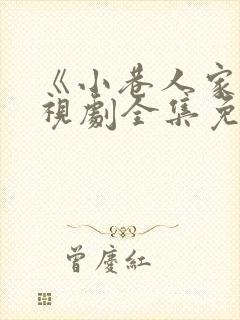 《小巷人家
視劇全集免
曾慶紅